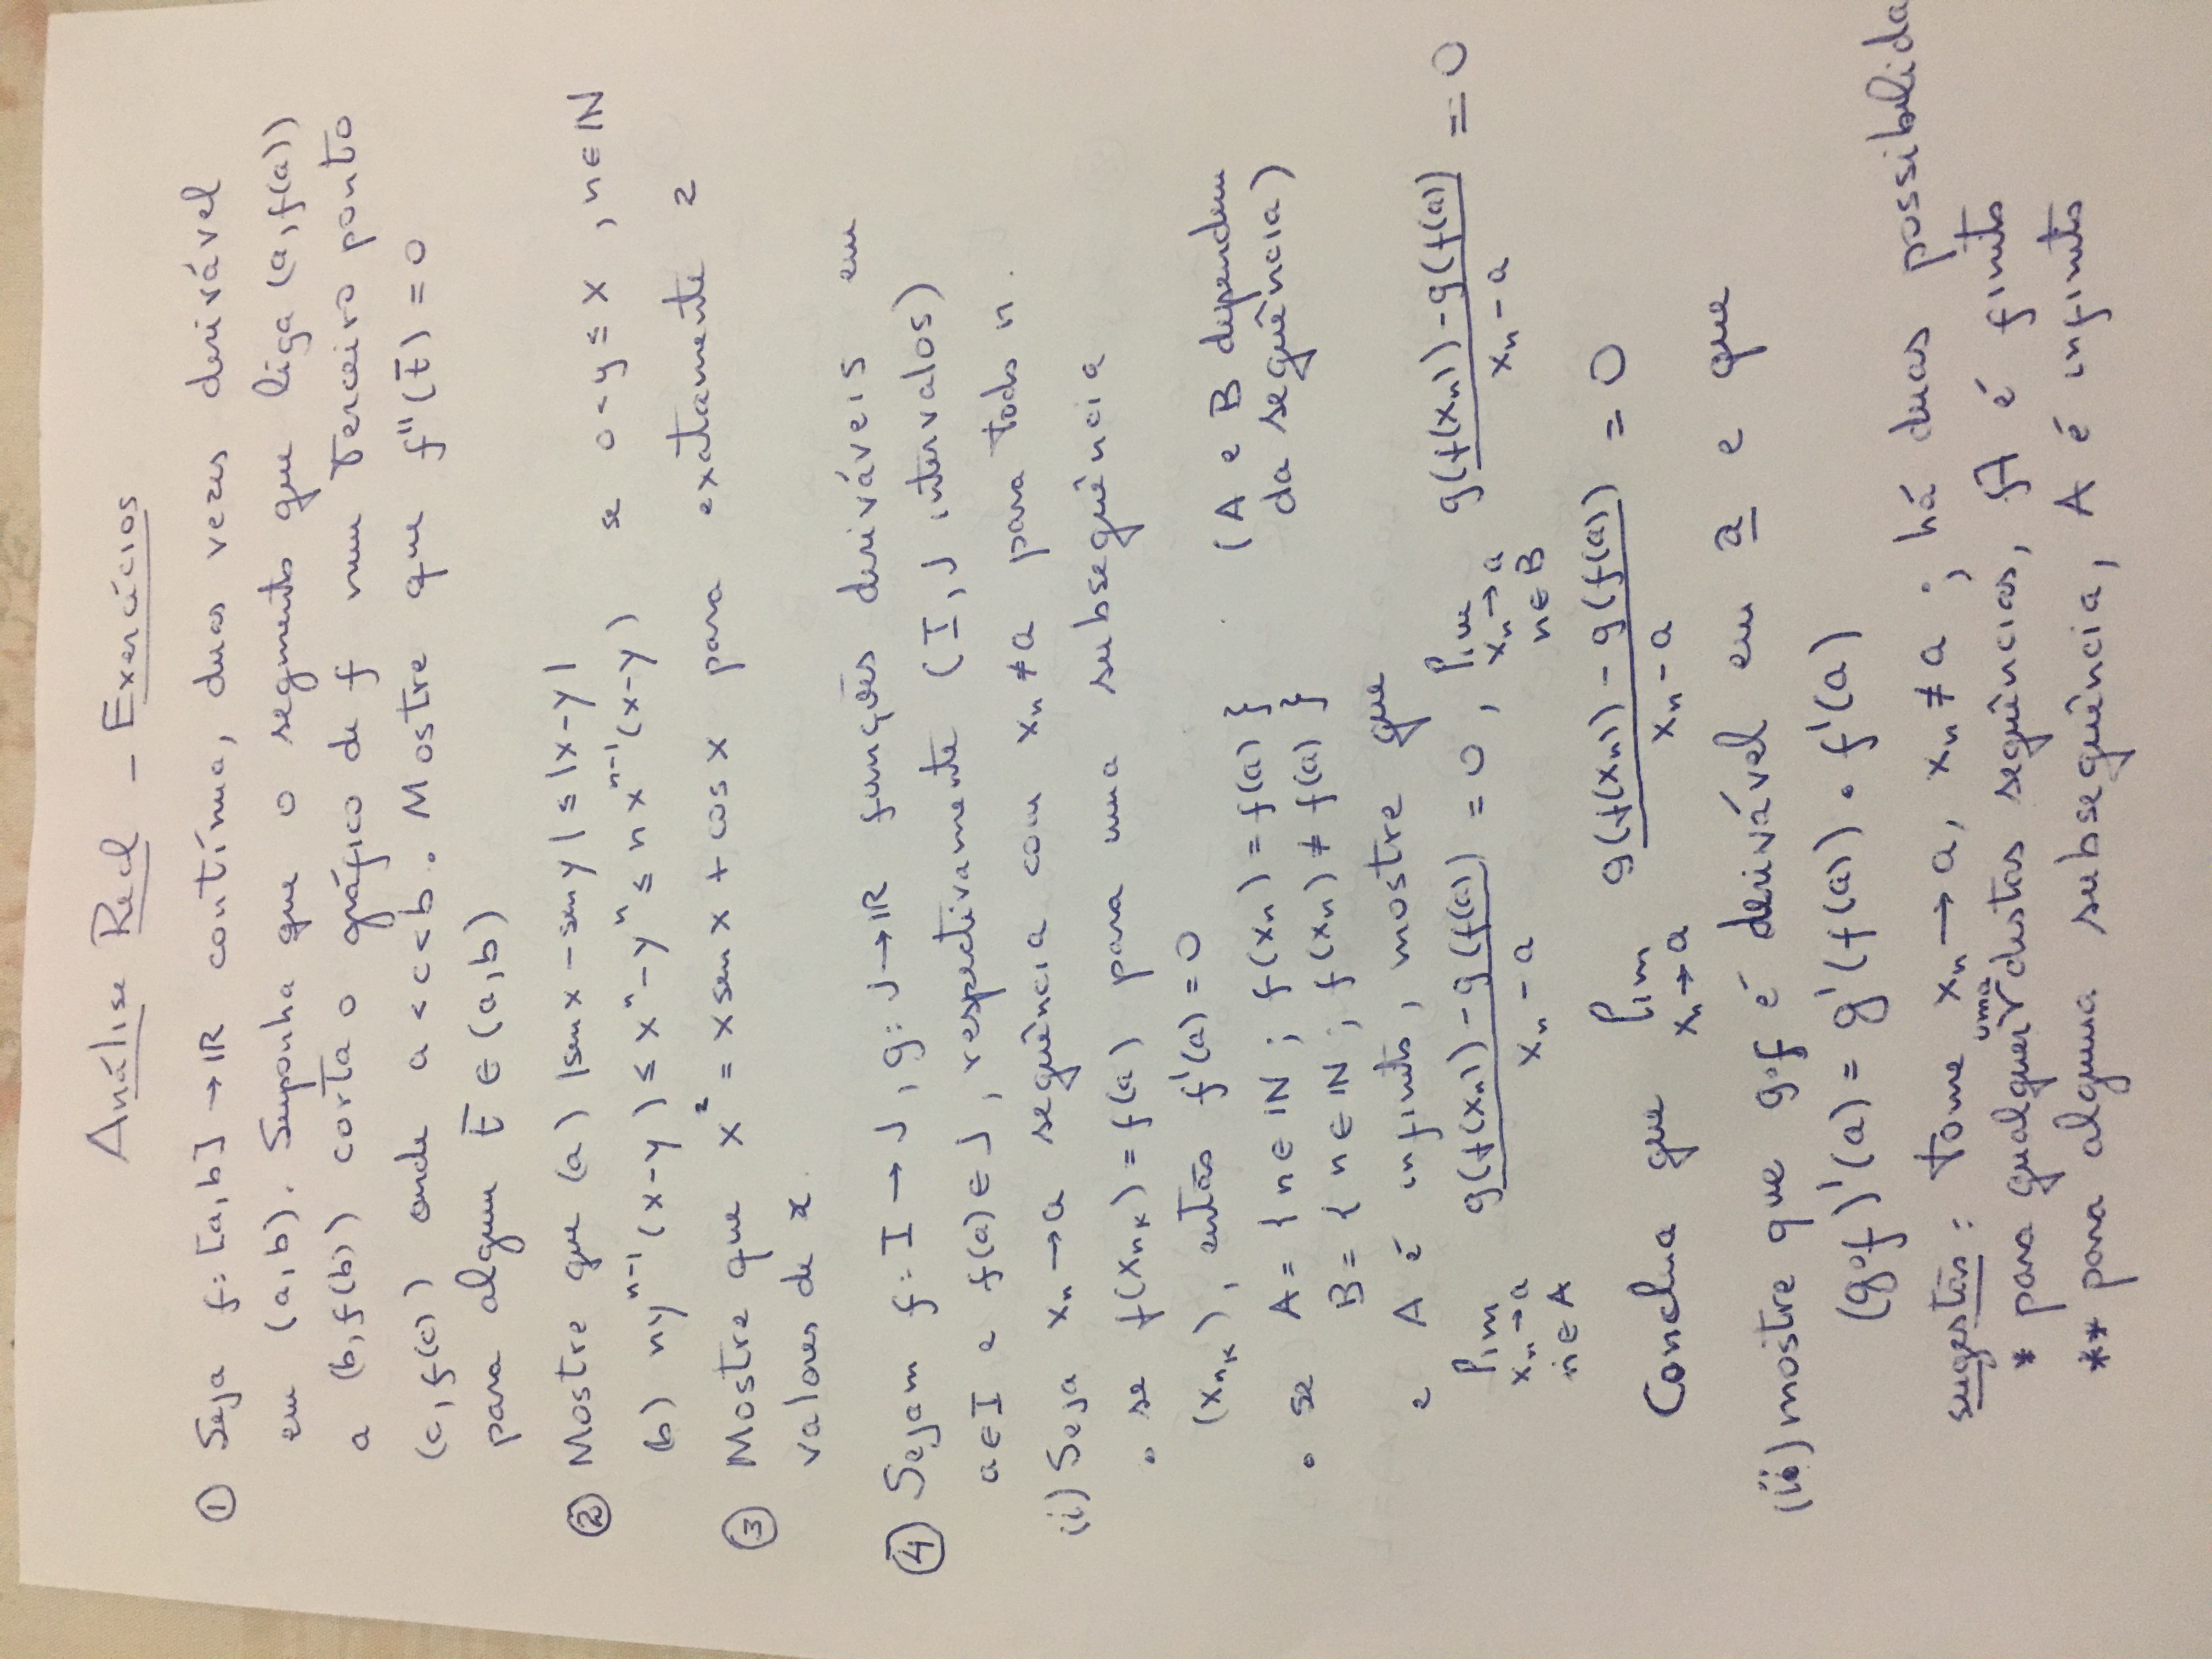 Análise Real - Exercícios
① Seja f: [a,b] → IR contínua, duas vezes derivável
em (a,b). Suponha que o segmento que liga (a,f(a))
a (b,f(b)) corta o gráfico de f num terceiro ponto
(c,f(c)) onde a < c < b. Mostre que f''(t̄) = 0
para algum t̄ ∈ (a,b)
② Mostre que (a) |sen x - sen y| ≤ |x-y|
(b) ny^{n-1}(x-y) ≤ x^n - y^n ≤ nx^{n-1}(x-y) se 0 < y ≤ x, n ∈ IN
③ Mostre que x² = x sen x + cos x para exatamente 2
valores de x.
④ Sejam f: I → J, g: J → IR funções deriváveis em
a ∈ I e f(a) ∈ J, respectivamente (I, J intervalos)
(i) Seja x_n → a sequência com x_n ≠ a para todo n.
• se f(x_{n_k}) = f(a) para uma subsequência
(x_{n_k}), então f'(a) = 0
• se A = { n ∈ IN ; f(x_n) = f(a) } (A e B dependem
B = { n ∈ IN ; f(x_n) ≠ f(a) } da sequência)
e A é infinito, mostre que
lim_{x_n→a, n∈A} (g(f(x_n)) - g(f(a)))/(x_n - a) = 0, lim_{x_n→a, n∈B} (g(f(x_n)) - g(f(a)))/(x_n - a) = 0
Conclua que lim_{x_n→a} (g(f(x_n)) - g(f(a)))/(x_n - a) = 0
(ii) mostre que g∘f é derivável em a e que
(g∘f)'(a) = g'(f(a)) · f'(a)
sugestão: tome x_n → a, x_n ≠ a ; há duas possibilida
* para qualquer uma destas sequências, A é finito
** para alguma subsequência, A é infinito